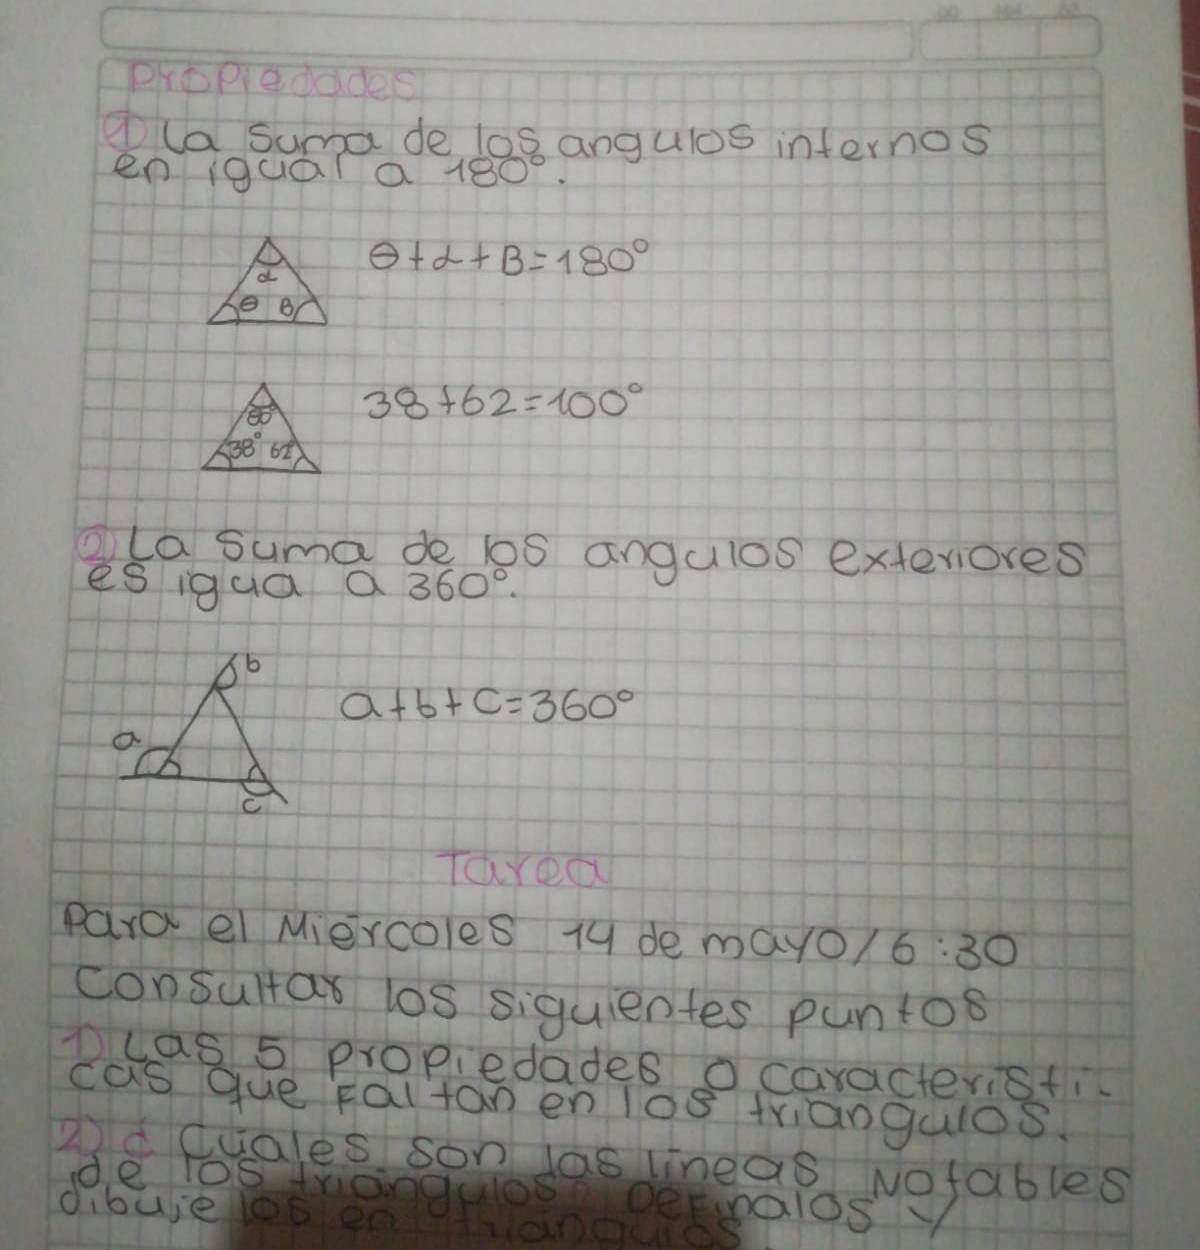 Propiedades
① La suma de los angulos internos
en igual a 180°.
α
θ B
θ+α+B=180°
80°
38° 62
38+62=100°
② La suma de los angulos exteriores
es igua a 360°.
b
a
c
a+b+c=360°
Tarea
Para el Miércoles 14 de mayo/6:30
Consultar los siguientes puntos
1) Las 5 propiedades o caracteristi-
cas que Faltan en los triangulos.
2) ¿ Cuales son las lineas Notables
de los triangulos? Definalos y
dibujelos en triangulos.